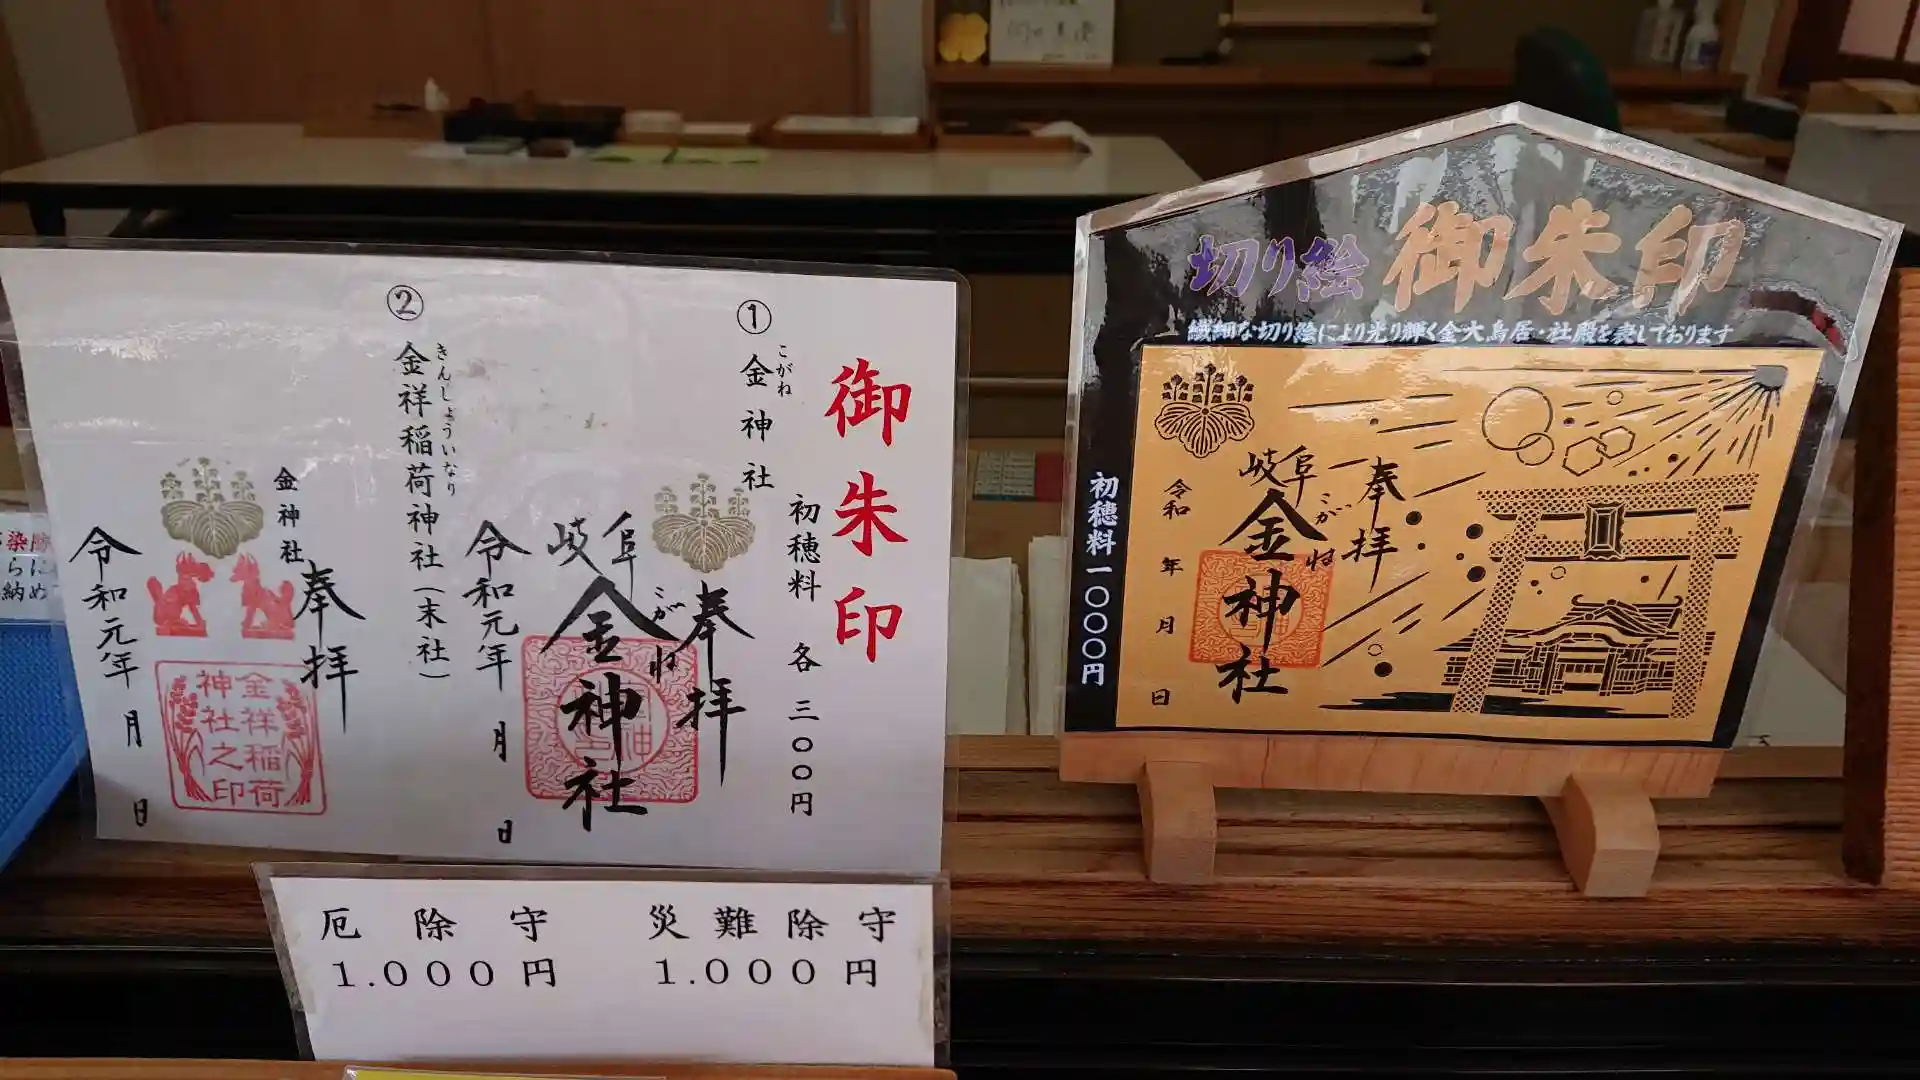 御朱印
初穂料 各 三〇〇円
① 金神社
こがね
奉拝
岐阜
金神社
こがね
令和元年 月 日
② 金祥稲荷神社(末社)
きんしょういなり
金神社
奉拝
金祥稲荷
神社之印
令和元年 月 日
厄除守
1.000円
災難除守
1.000円
切り絵 御朱印
繊細な切り絵により光り輝く金大鳥居・社殿を表しております
初穂料一〇〇〇円
奉拝
岐阜
金神社
こがね
令和 年 月 日
染
らに
納め